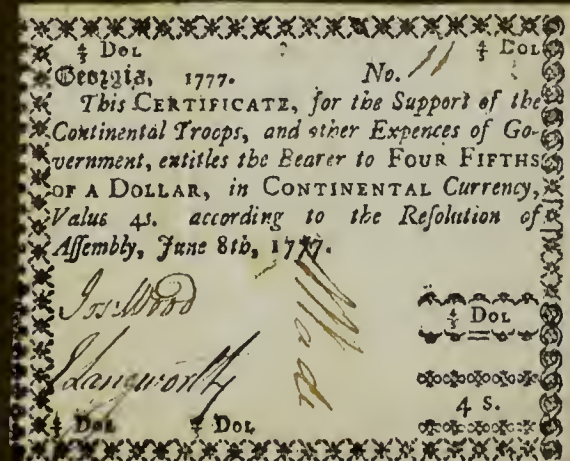 ⅘ Dol ⅘ Dol
Georgia, 1777. No. 11
This CERTIFICATE, for the Support of the
Continental Troops, and other Expences of Go-
vernment, entitles the Bearer to FOUR FIFTHS
OF A DOLLAR, in CONTINENTAL Currency,
Value 4s. according to the Reſolution of
Aſſembly, June 8th, 1777.
Jos: Wood
⅘ Dol
4 s.
Dol ⅘ Dol